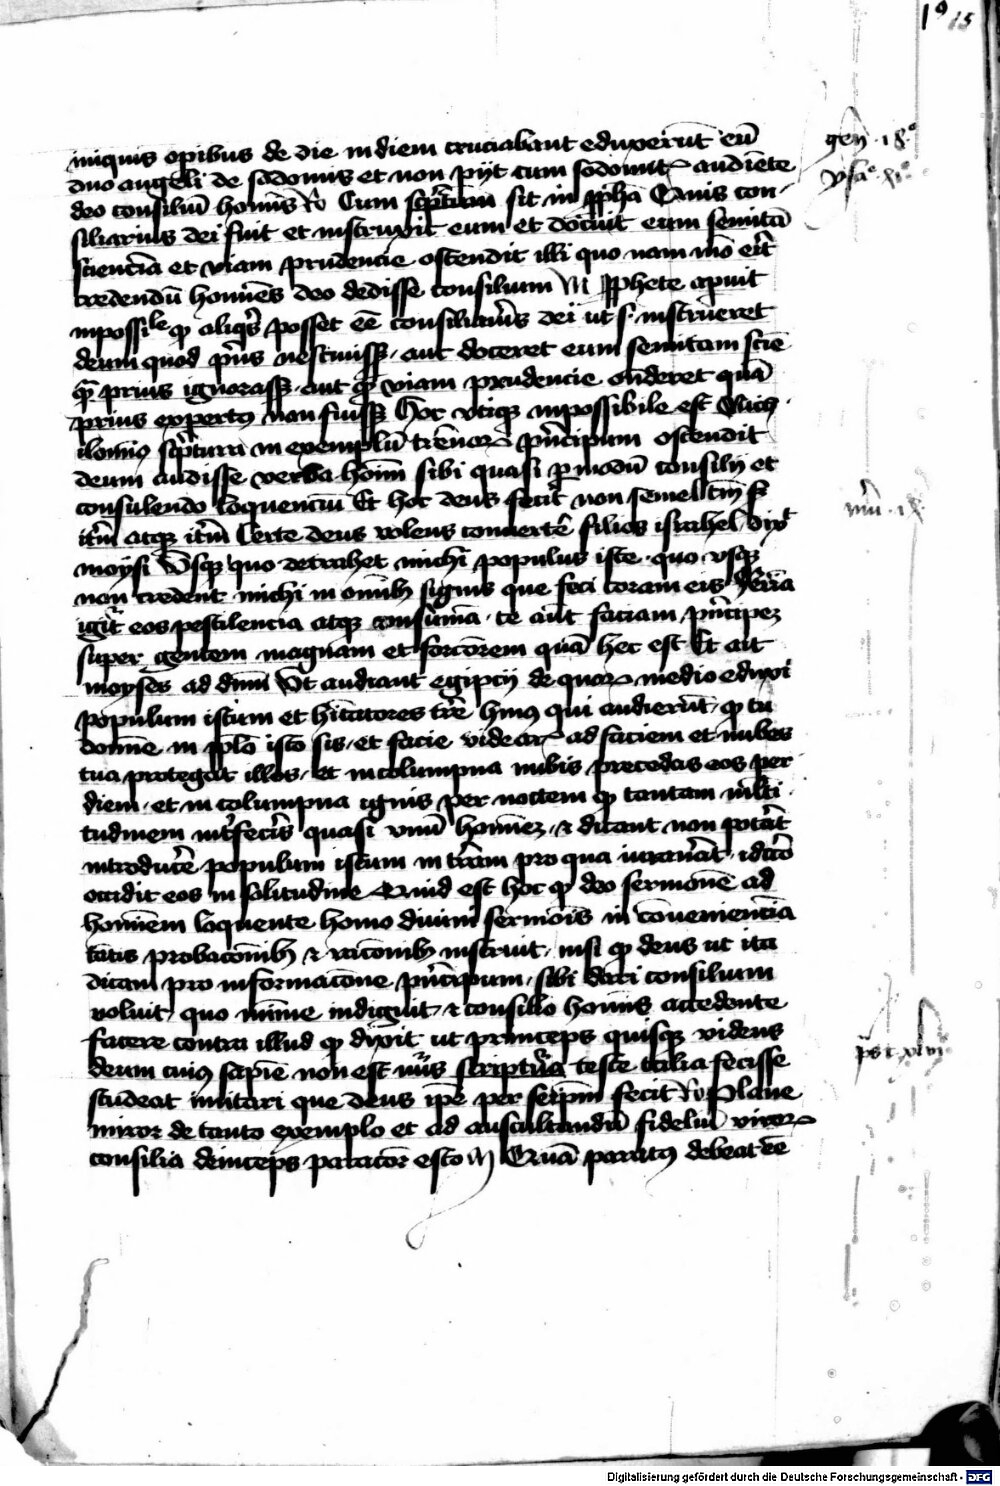 19 15
iniquis opibus de die in diem cruciabant eduxerūt eū
duo angeli de sodomis et non pijt cum sodomit᷑ audiēte
deo consiliū homīs Ro Cum scͥptum sit in ꝓpha Quis con-
siliarius dei fuit et instruxit eum et docuit eum semitā
scientia et viam prudencie ostendit illi quo nam mō erit
credendū homēs deo dedisse consilium M Prophete aperuit
impossiᵇˡᵉ qͥ aliqͥs posset eē consiliariꝰs dei ut sͥ instrueret
deum quod priꝰs nescīuissꝫ · aut doceret eum semitam sciē
quā prius ignorassꝫ · aut qͣ viam prudencie ondͤret quā
prius expertꝰ non fuissꝫ Hoc utiqꝫ inpossibile est
scͥptura in exemplū principum ostendit
deum audisse verba homī sibi quasi ꝑ modū consilij et
consulendo loquenciū Et hoc deus fecit non semel tm̄ sꝫ
itͤm atqꝫ itͤm Certe deus volens conuertē filios israhel dixͭ
moysi Usqꝫ quo detrahet michi populus iste · quo usqꝫ
non credent michi in omībꝫ signis que feci coram eis feriā
igitͬ eos pestilencia atqꝫ consumā · te aūt faciam pͥncipeꝫ
super gentem magnam et forciorem quā hec est Et ait
moyses ad dnm̄ Ut audiant egipcij de quorꝝ medio eduxi
populum istum et hītatores tͬre huiꝰ qui audierūt · qͦ tu
domīe in pplo isto sis · et facie videarꝭ ad faciem et nubes
tua protegat illos · et in columpna nubis precedas eos per
diem · et in columpna ignis per noctem qͦ tantam mlti-
tudinem intͬfecerꝭ quasi unū homīeꝫ · & dicant non potͣat
introducͤe populum istum in tͬram pro qua iurauͣat · idcͥco
occidit eos in solitudine Quid est hoc qͦ deo sermonē ad
homīem loquente homo diuini sermōīs in cōueniencia
tātis probacōnibꝫ & racōnibꝫ instruit · nisi qͦ deus ut ita
dicam pro informacōne pͥncipum · sibi dari consilium
voluit quo mīme indiguit · & consilio homīs accedente
facere contra illud qͦ dixit ut princeps quisqꝫ videns
deum cuiꝰ sapiē non est nūs scriptͣa teste talia fecisse
studeat imitari que deus ip̄e per seip̄m fecit Ro Plane
miror de tanto exemplo et ad auscultandū fideliū virorꝝ
consilia deinceps paracior esto M Quā paratꝰ debeat eē
gen · 18°
ysa° · xl°
nūi · 18
ps c xlvi°
Digitalisierung gefördert durch die Deutsche Forschungsgemeinschaft - DFG